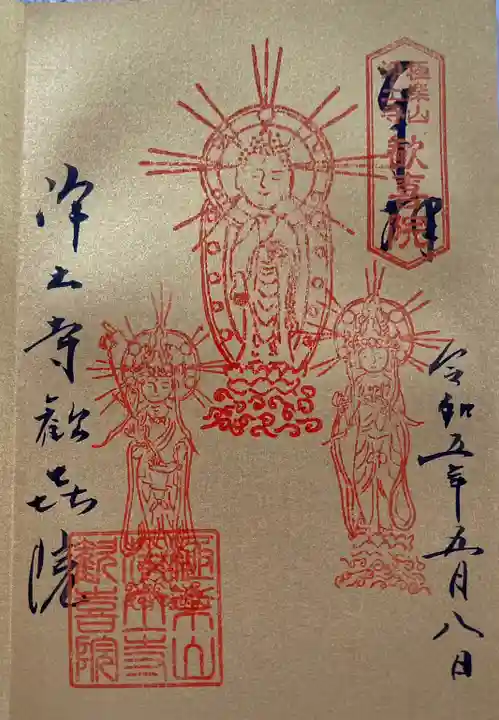 奉拝
極楽山
浄土寺
歓喜院
令和五年五月八日
浄土寺歓㐂院
極楽山
浄土寺
歓喜院